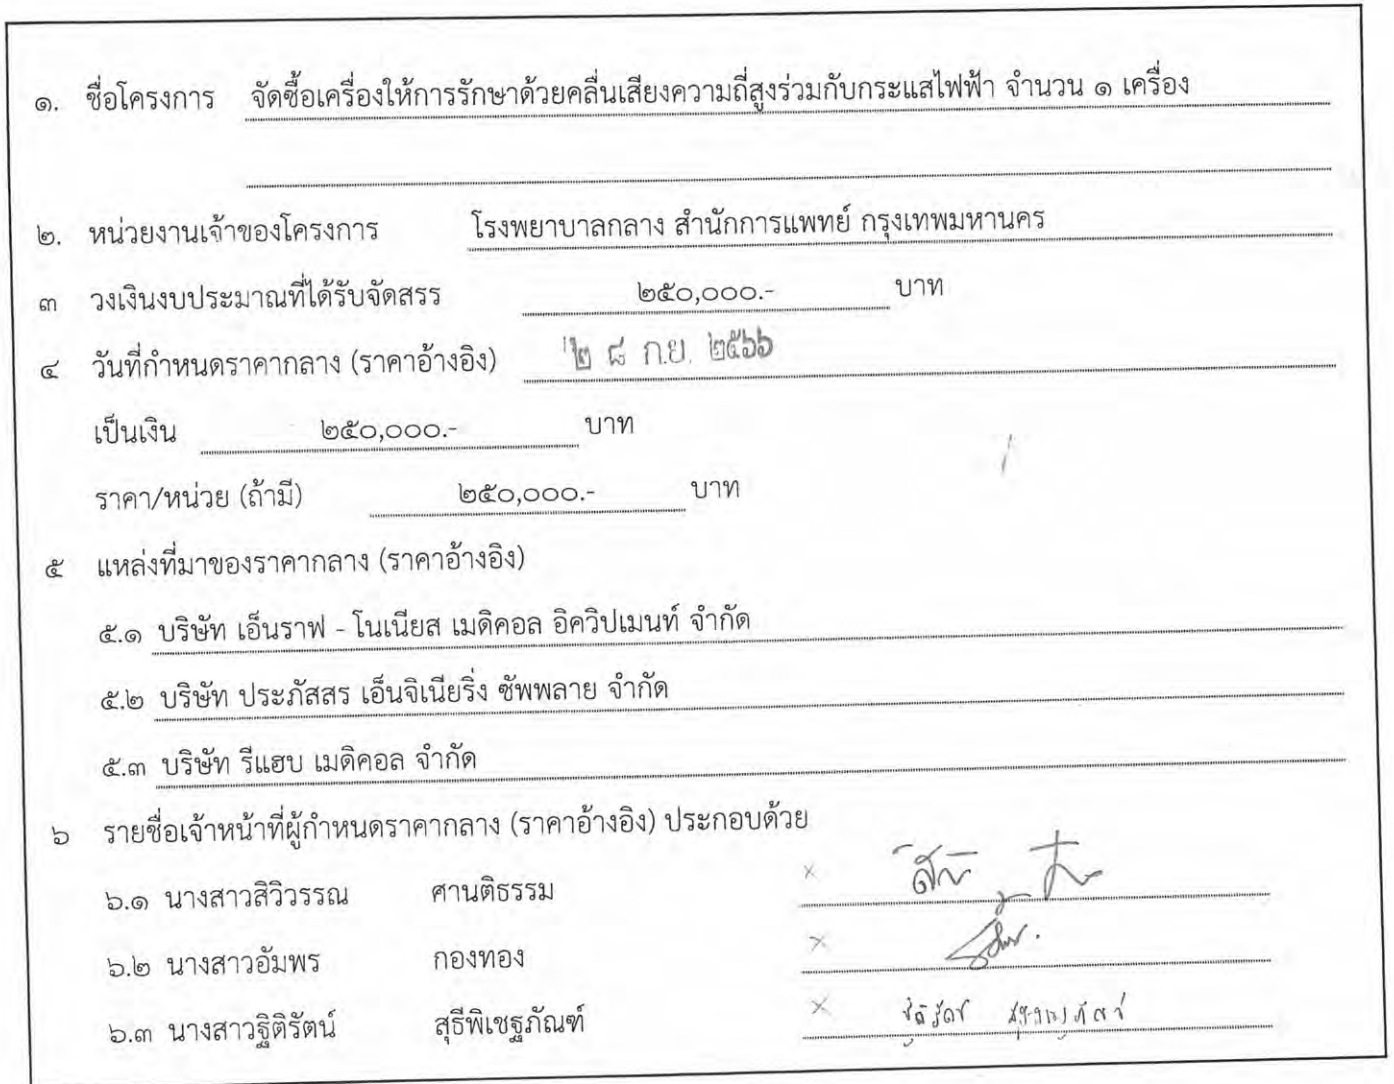 ๑. ชื่อโครงการ จัดซื้อเครื่องให้การรักษาด้วยคลื่นเสียงความถี่สูงร่วมกับกระแสไฟฟ้า จำนวน ๑ เครื่อง
๒. หน่วยงานเจ้าของโครงการ โรงพยาบาลกลาง สำนักการแพทย์ กรุงเทพมหานคร
๓ วงเงินงบประมาณที่ได้รับจัดสรร ๒๕๐,๐๐๐.- บาท
๔ วันที่กำหนดราคากลาง (ราคาอ้างอิง) ๒ ๘ ก.ย. ๒๕๖๖
เป็นเงิน ๒๕๐,๐๐๐.- บาท
ราคา/หน่วย (ถ้ามี) ๒๕๐,๐๐๐.- บาท
๕ แหล่งที่มาของราคากลาง (ราคาอ้างอิง)
๕.๑ บริษัท เอ็นราฟ - โนเนียส เมดิคอล อิควิปเมนท์ จำกัด
๕.๒ บริษัท ประภัสสร เอ็นจิเนียริ่ง ซัพพลาย จำกัด
๕.๓ บริษัท รีแฮบ เมดิคอล จำกัด
๖ รายชื่อเจ้าหน้าที่ผู้กำหนดราคากลาง (ราคาอ้างอิง) ประกอบด้วย
๖.๑ นางสาวสิวิวรรณ ศานติธรรม ×
๖.๒ นางสาวอัมพร กองทอง ×
๖.๓ นางสาวฐิติรัตน์ สุธีพิเชฐภัณฑ์ ×